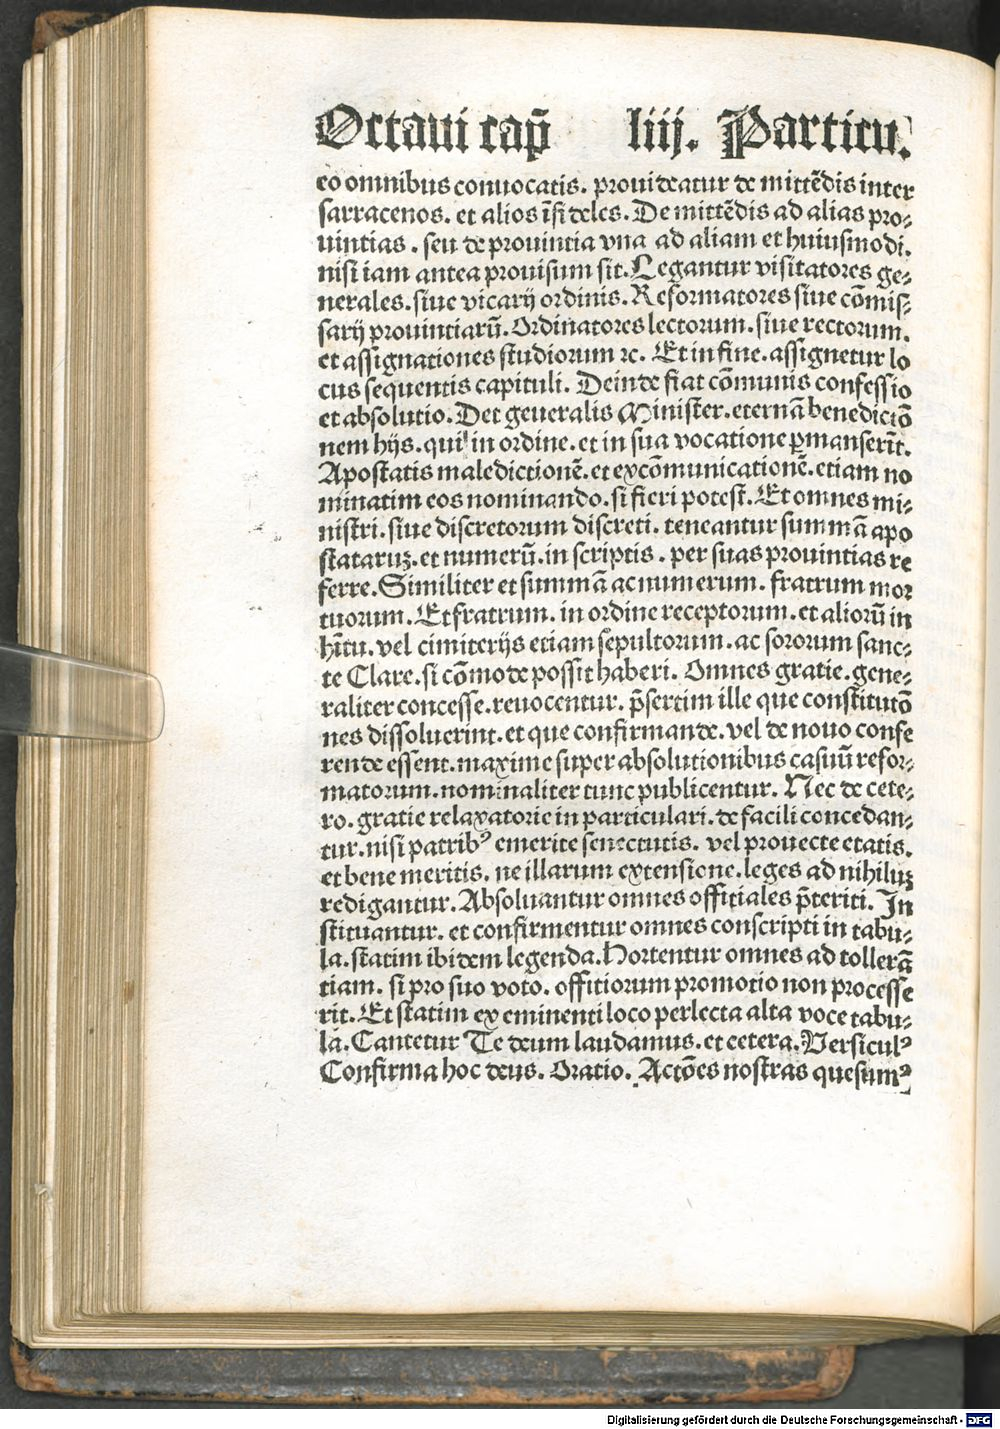 Octaui cap̄ liij. Particu.
eo omnibus conuocatis. prouideatur de mittēdis inter
sarracenos. et alios īfideles. De mittēdis ad alias pro⸗
uintias . seu de prouintia vna ad aliam et huiusmodi.
nisi iam antea prouisum sit. Legantur visitatores ge⸗
nerales. siue vicarij ordinis. Reformatores siue cōmis⸗
sarij prouintiarū. Ordinatores lectorum. siue rectorum.
et assignationes studiorum ⁊c. Et in fine. assignetur lo
cus sequentis capituli. Deinde fiat cōmunis confessio
et absolutio. Det generalis Minister. eternā benedictiō
nem hijs. qui in ordine. et in sua vocatione ꝑmanserīt.
Apostatis maledictionē. et excōmunicationē. etiam no
minatim eos nominando. si fieri potest. Et omnes mi⸗
nistri. siue discretorum discreti. teneantur summā apo
stataruꝫ. et numerū. in scriptis . per suas prouintias re
ferre. Similiter et summā ac numerum. fratrum mor
tuorum. Et fratrum. in ordine receptorum. et aliorū in
hītu. vel cimiterijs etiam sepultorum. ac sororum sanc⸗
te Clare. si cōmode possit haberi. Omnes gratie. gene⸗
raliter concesse. reuocentur. p̄sertim ille que constitutō
nes dissoluerint. et que confirmande. vel de nouo confe
rende essent. maxime super absolutionibus casuū refor⸗
matorum. nominaliter tunc publicentur. Nec de cete⸗
ro. gratie relaxatorie in particulari. de facili concedan⸗
tur. nisi patribꝰ emerite senectutis. vel prouecte etatis.
et bene meritis. ne illarum extensione. leges ad nihiluꝫ
redigantur. Absoluantur omnes offitiales p̄teriti. In
stituantur. et confirmentur omnes conscripti in tabu⸗
la. statim ibidem legenda. Hortentur omnes ad tollerā
tiam. si pro suo voto. offitiorum promotio non processe
rit. Et statim ex eminenti loco perlecta alta voce tabu⸗
la. Cantetur Te deum laudamus. et cetera. Versiculꝰ
Confirma hoc deus. Oratio. Actōes nostras quesumꝰ
Digitalisierung gefördert durch die Deutsche Forschungsgemeinschaft - DFG